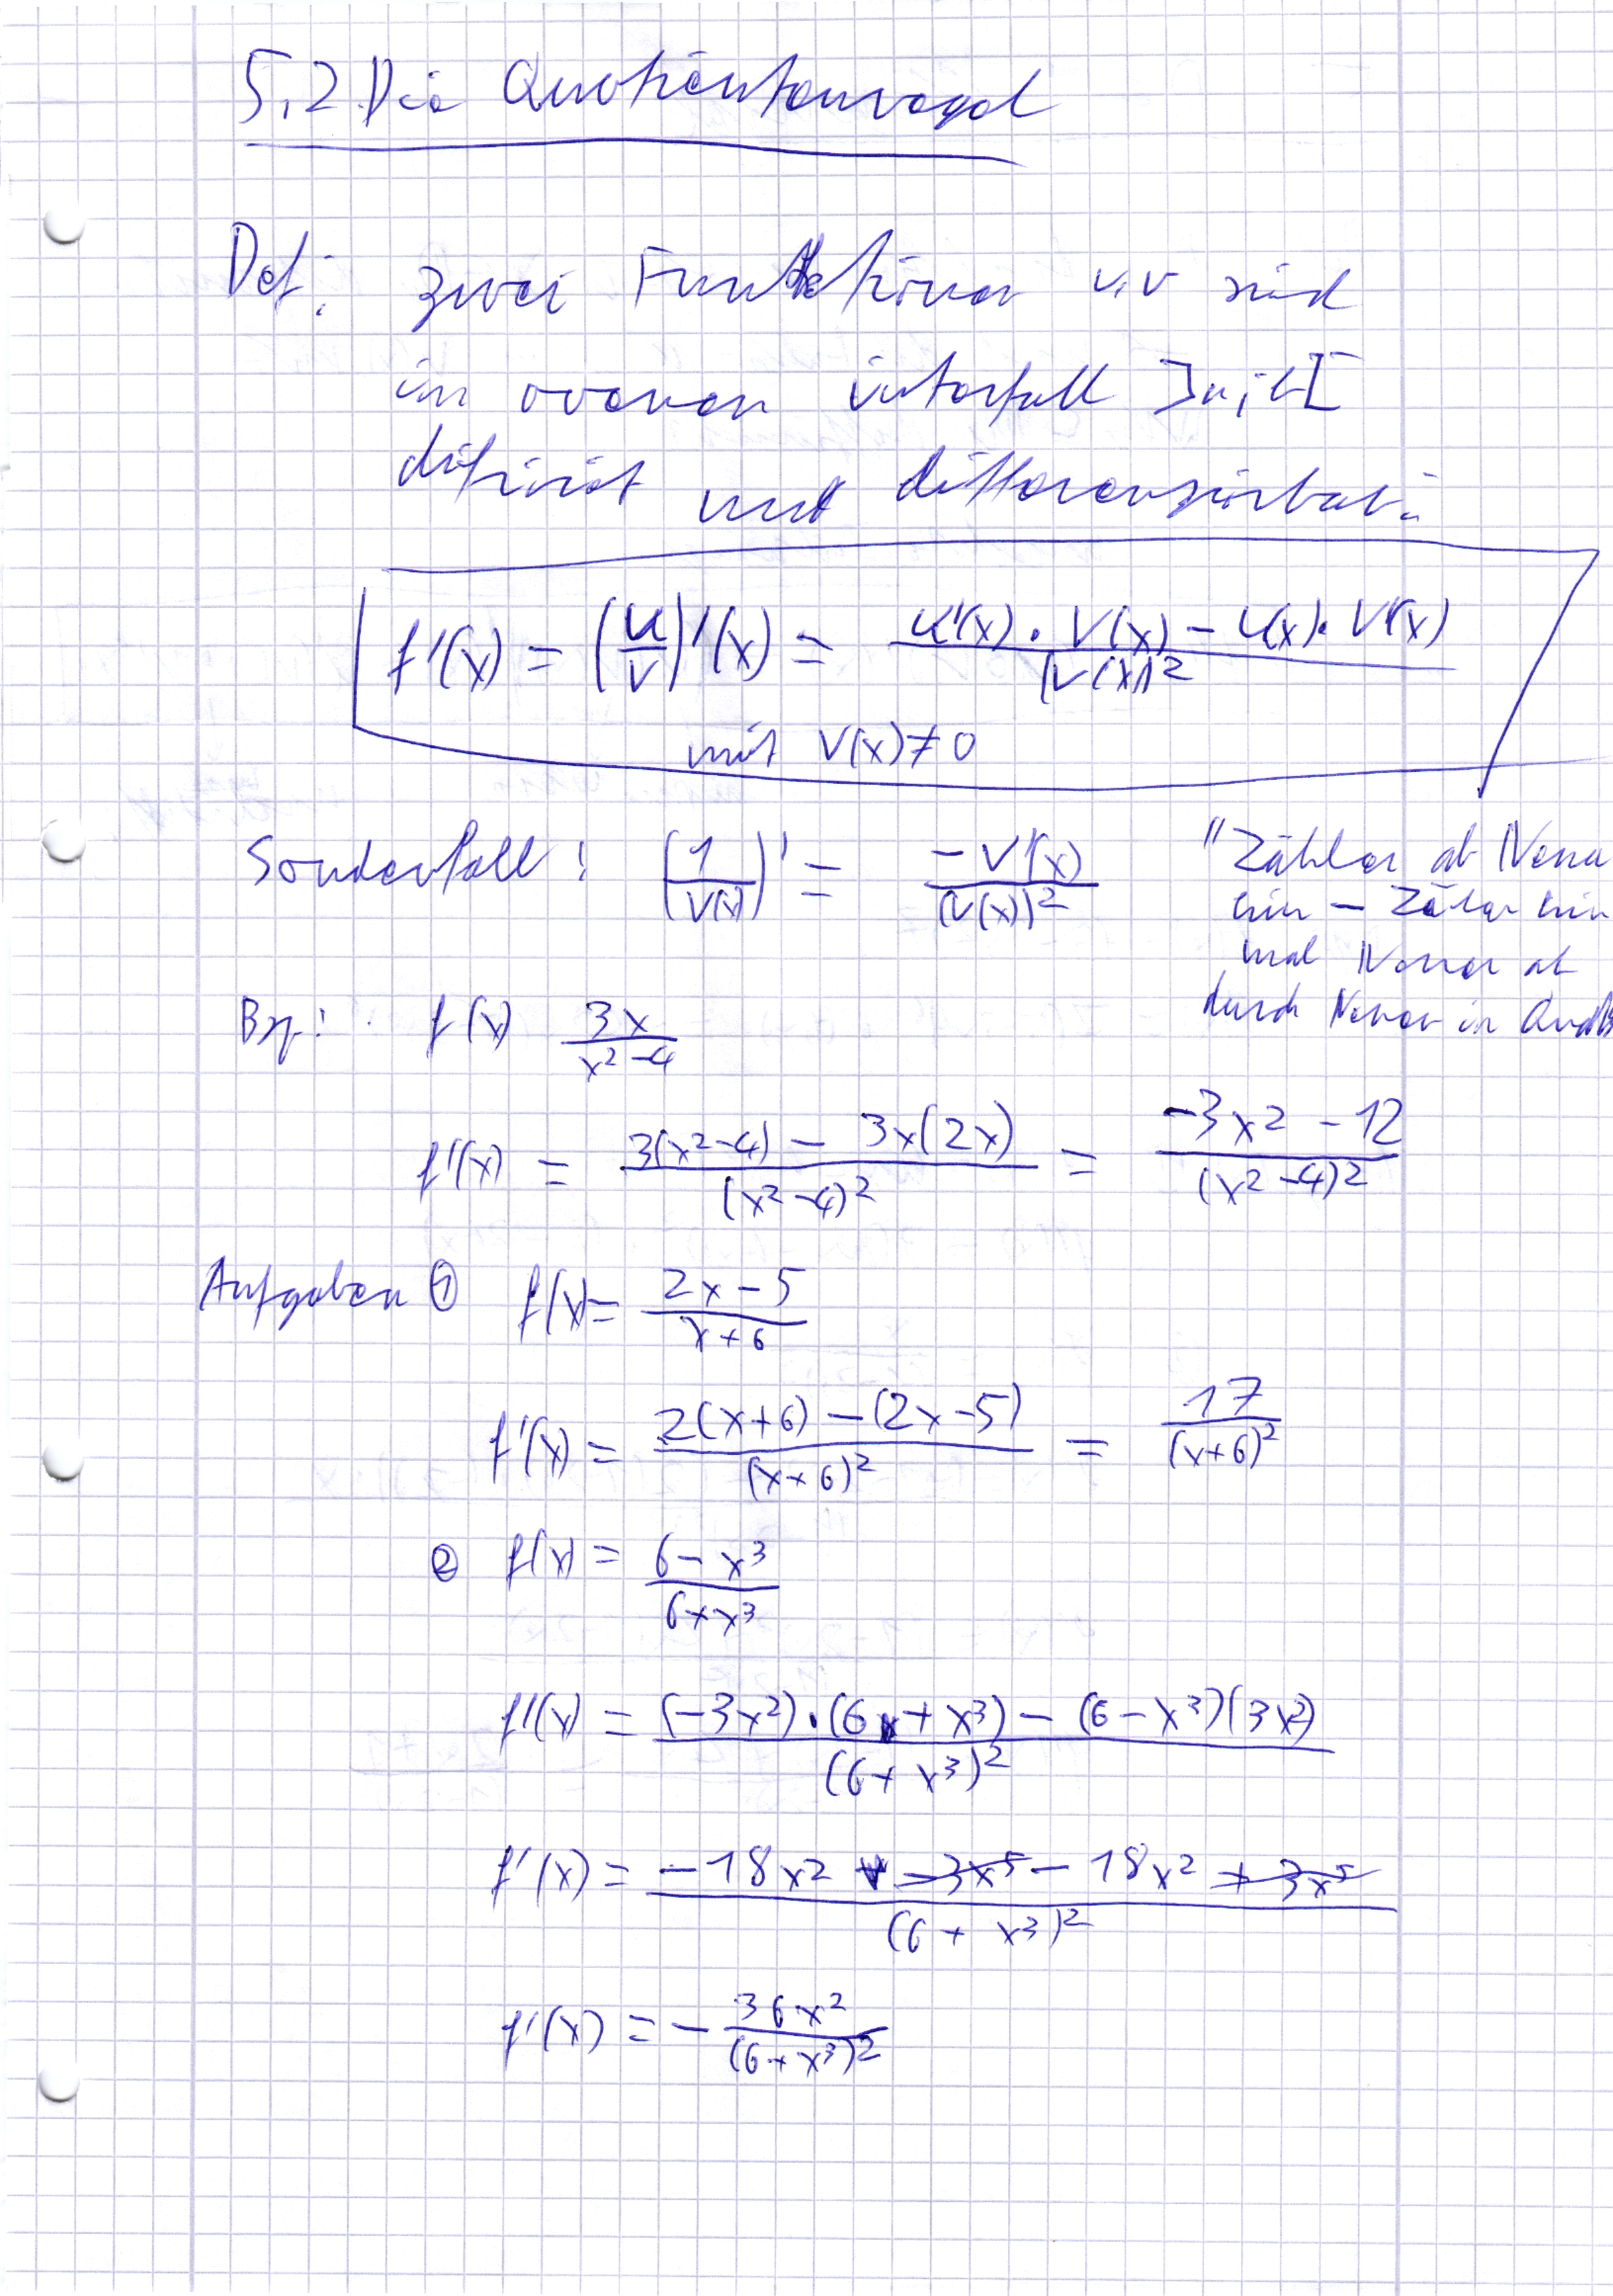 5.2 Die Quotientenregel
Def: zwei Funktionen u,v sind
im ovenen interfall ]a;b[
difiniet und differenzierbar:
f'(x) = (u/v)'(x) = (u'(x) · v(x) - u(x) · v'(x))/(v(x))²
mit v(x) ≠ 0
Sonderfall: (1/v(x))' = -v'(x)/(v(x))²
"Zähler ab Nenner
hin - Zäler hin
mal Nenner ab
durch Nenner in Quad
Bsp: f(x) 3x/(x²-4)
f'(x) = (3(x²-4) - 3x(2x))/(x²-4)² = (-3x² -12)/(x²-4)²
Aufgaben ① f(x) = (2x-5)/(x+6)
f'(x) = (2(x+6) - (2x-5))/(x+6)² = 17/(x+6)²
② f(x) = (6-x³)/(6+x³)
f'(x) = ((-3x²)·(6+x³) - (6-x³)(3x²))/(6+x³)²
f'(x) = (-18x² -3x⁵ - 18x² + 3x⁵)/(6+x³)²
f'(x) = - 36x²/(6+x³)²